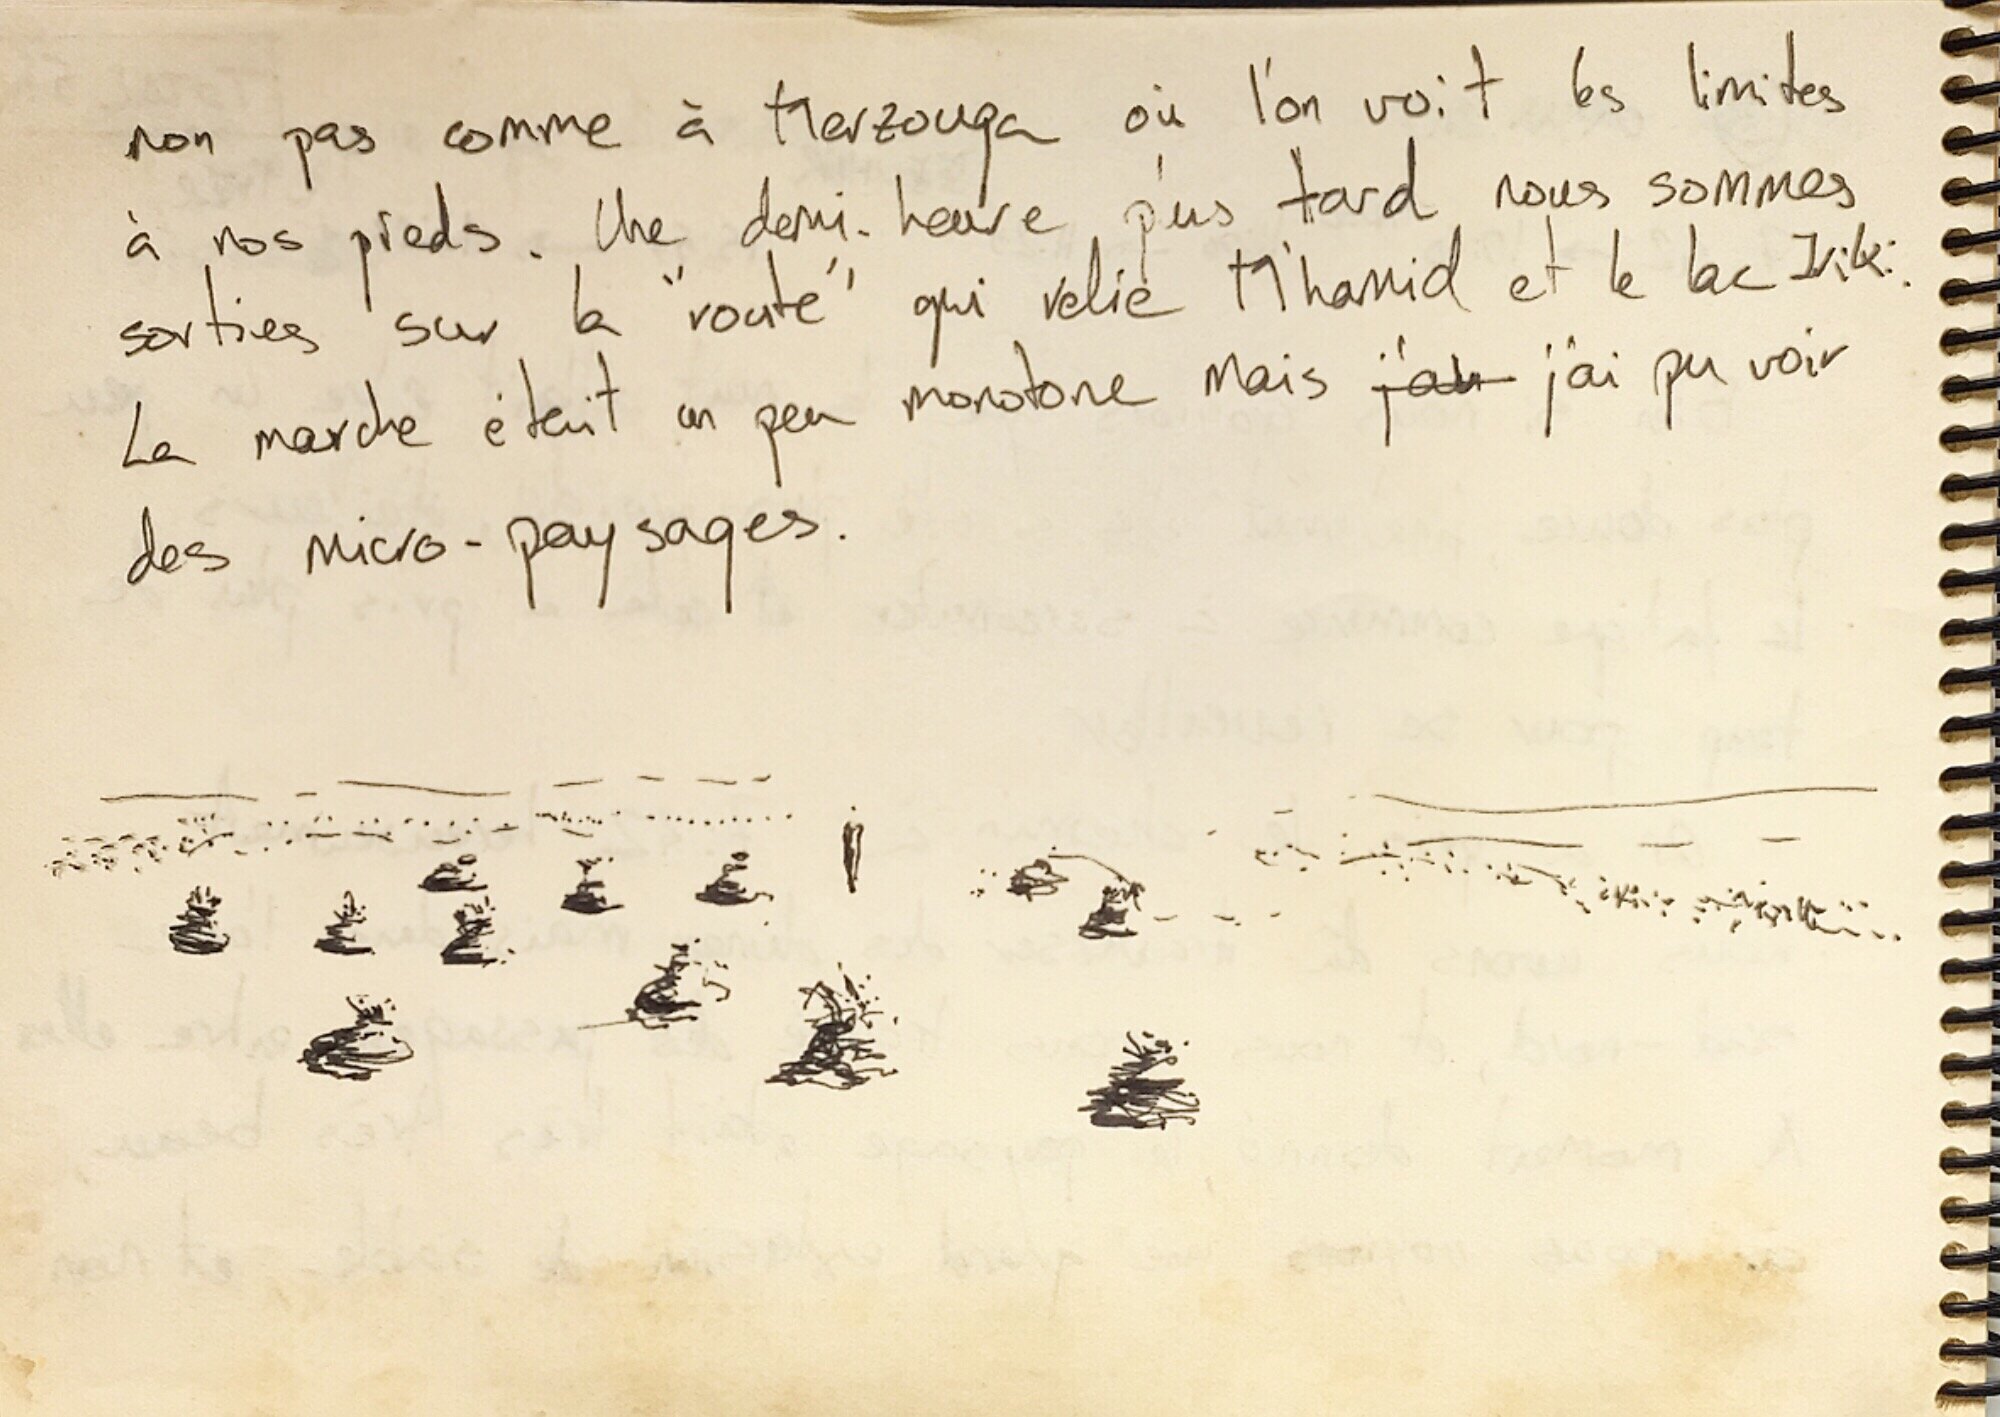 non pas comme à Merzouga où l'on voit les limites
à nos pieds. Une demi-heure plus tard nous sommes
sorties sur la "route" qui relie M'hamid et le lac Iriki.
La marche était un peu monotone mais j'au j'ai pu voir
des micro-paysages.